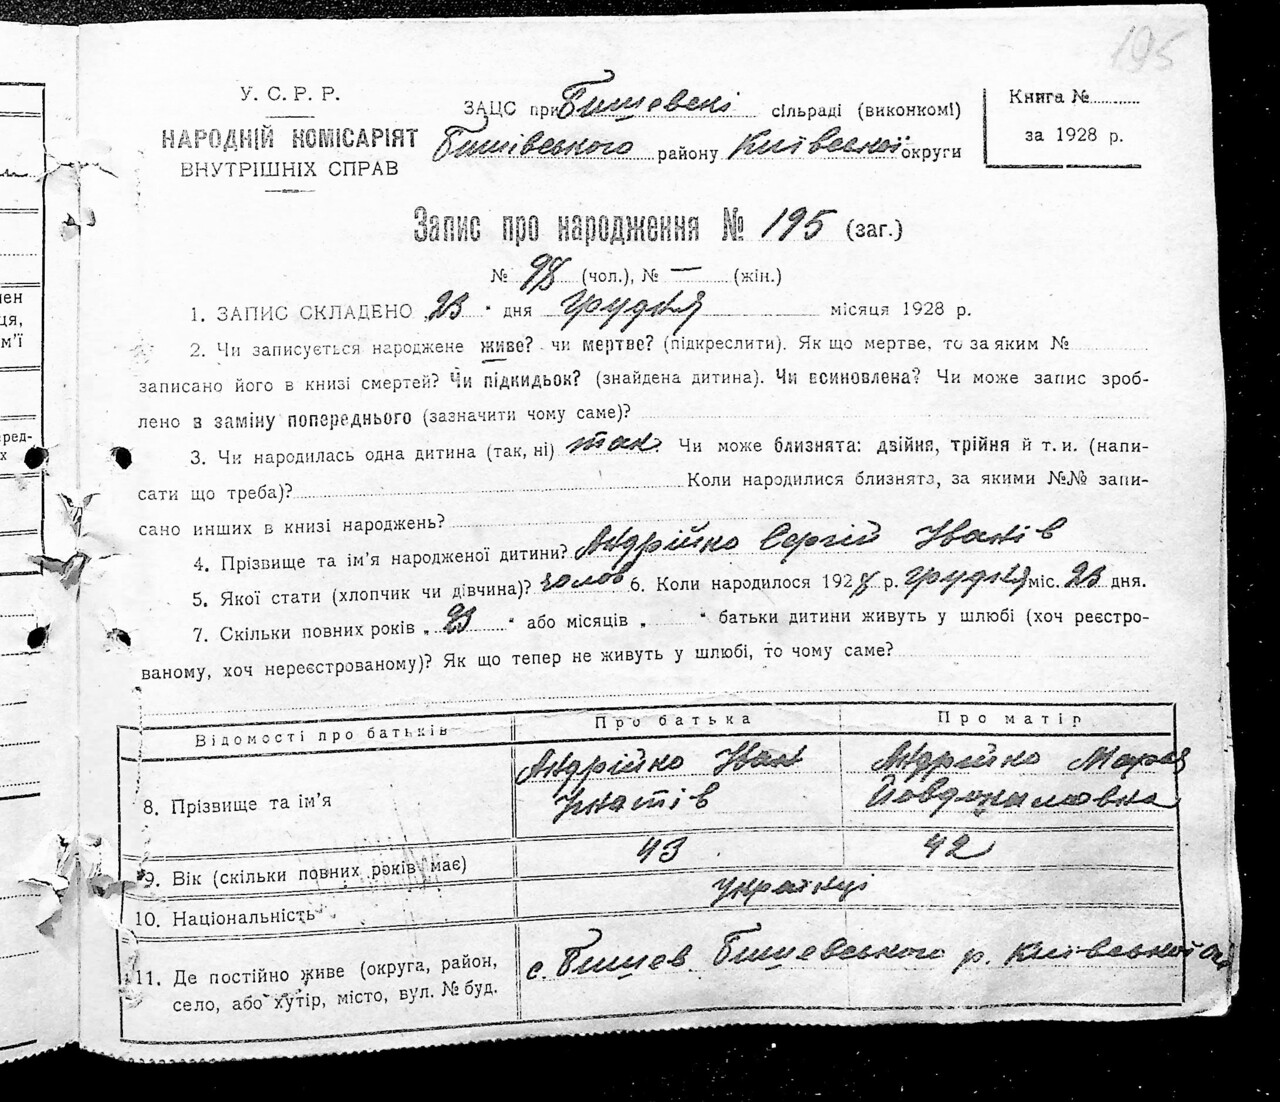 195
У. С. Р. Р.
НАРОДНІЙ КОМІСАРІЯТ
ВНУТРІШНІХ СПРАВ
ЗАЦС при Бишевскі сільраді (виконкомі)
Бишівського району Київської округи
Книга №
за 1928 р.
Запис про народження № 195 (заг.)
№ 98 (чол.), № — (жін.)
1. ЗАПИС СКЛАДЕНО „23 " дня грудня місяця 1928 р.
2. Чи записується народжене живе? чи мертве? (підкреслити). Як що мертве, то за яким №
записано його в книзі смертей? Чи підкидьок? (знайдена дитина). Чи всиновлена? Чи може запис зроб-
лено в заміну попереднього (зазначити чому саме)?
3. Чи народилась одна дитина (так, ні) так Чи може близнята: двійня, трійня й т. и. (напи-
сати що треба)? Коли народилися близнята, за якими №№ запи-
сано инших в книзі народжень?
4. Прізвище та ім'я народженої дитини? Андрійко Сергій Іванів
5. Якої стати (хлопчик чи дівчина)? чолов 6. Коли народилося 1928 р. грудня міс. 23 дня.
7. Скільки повних років „ 23 " або місяців „ " батьки дитини живуть у шлюбі (хоч реєстро-
ваному, хоч нереєстрованому)? Як що тепер не живуть у шлюбі, то чому саме?
Відомості про батьків Про батька Про матір
8. Прізвище та ім'я Андрійко Іван Андрійко Мария
Ігнатів
9. Вік (скільки повних років має) 43 42
10. Національність українці
11. Де постійно живе (округа, район, с. Бишев Бишевського р. Київської о
село, або хутір, місто, вул. № буд.